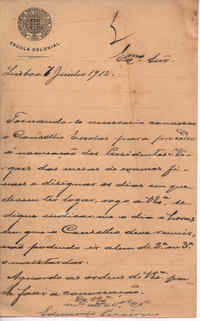 ESCOLA COLONIAL
Exmo Snr.
Lisboa 7 Junho 1912.
Tornando-se necessario convocar
o Conselho Escolar para proceder
á nomeação dos Presidentes e
das mesas de exames fi-
naes e designar os dias em que
devem ter logar, rogo a V. Exa. se
digne indicar-me o dia e hora
em que o Conselho deve reunir,
não podendo ir alem de 2 ou 3
o mais tardar.
Aguardo as ordens de V. Exa. pa-
ra fazer a convocação